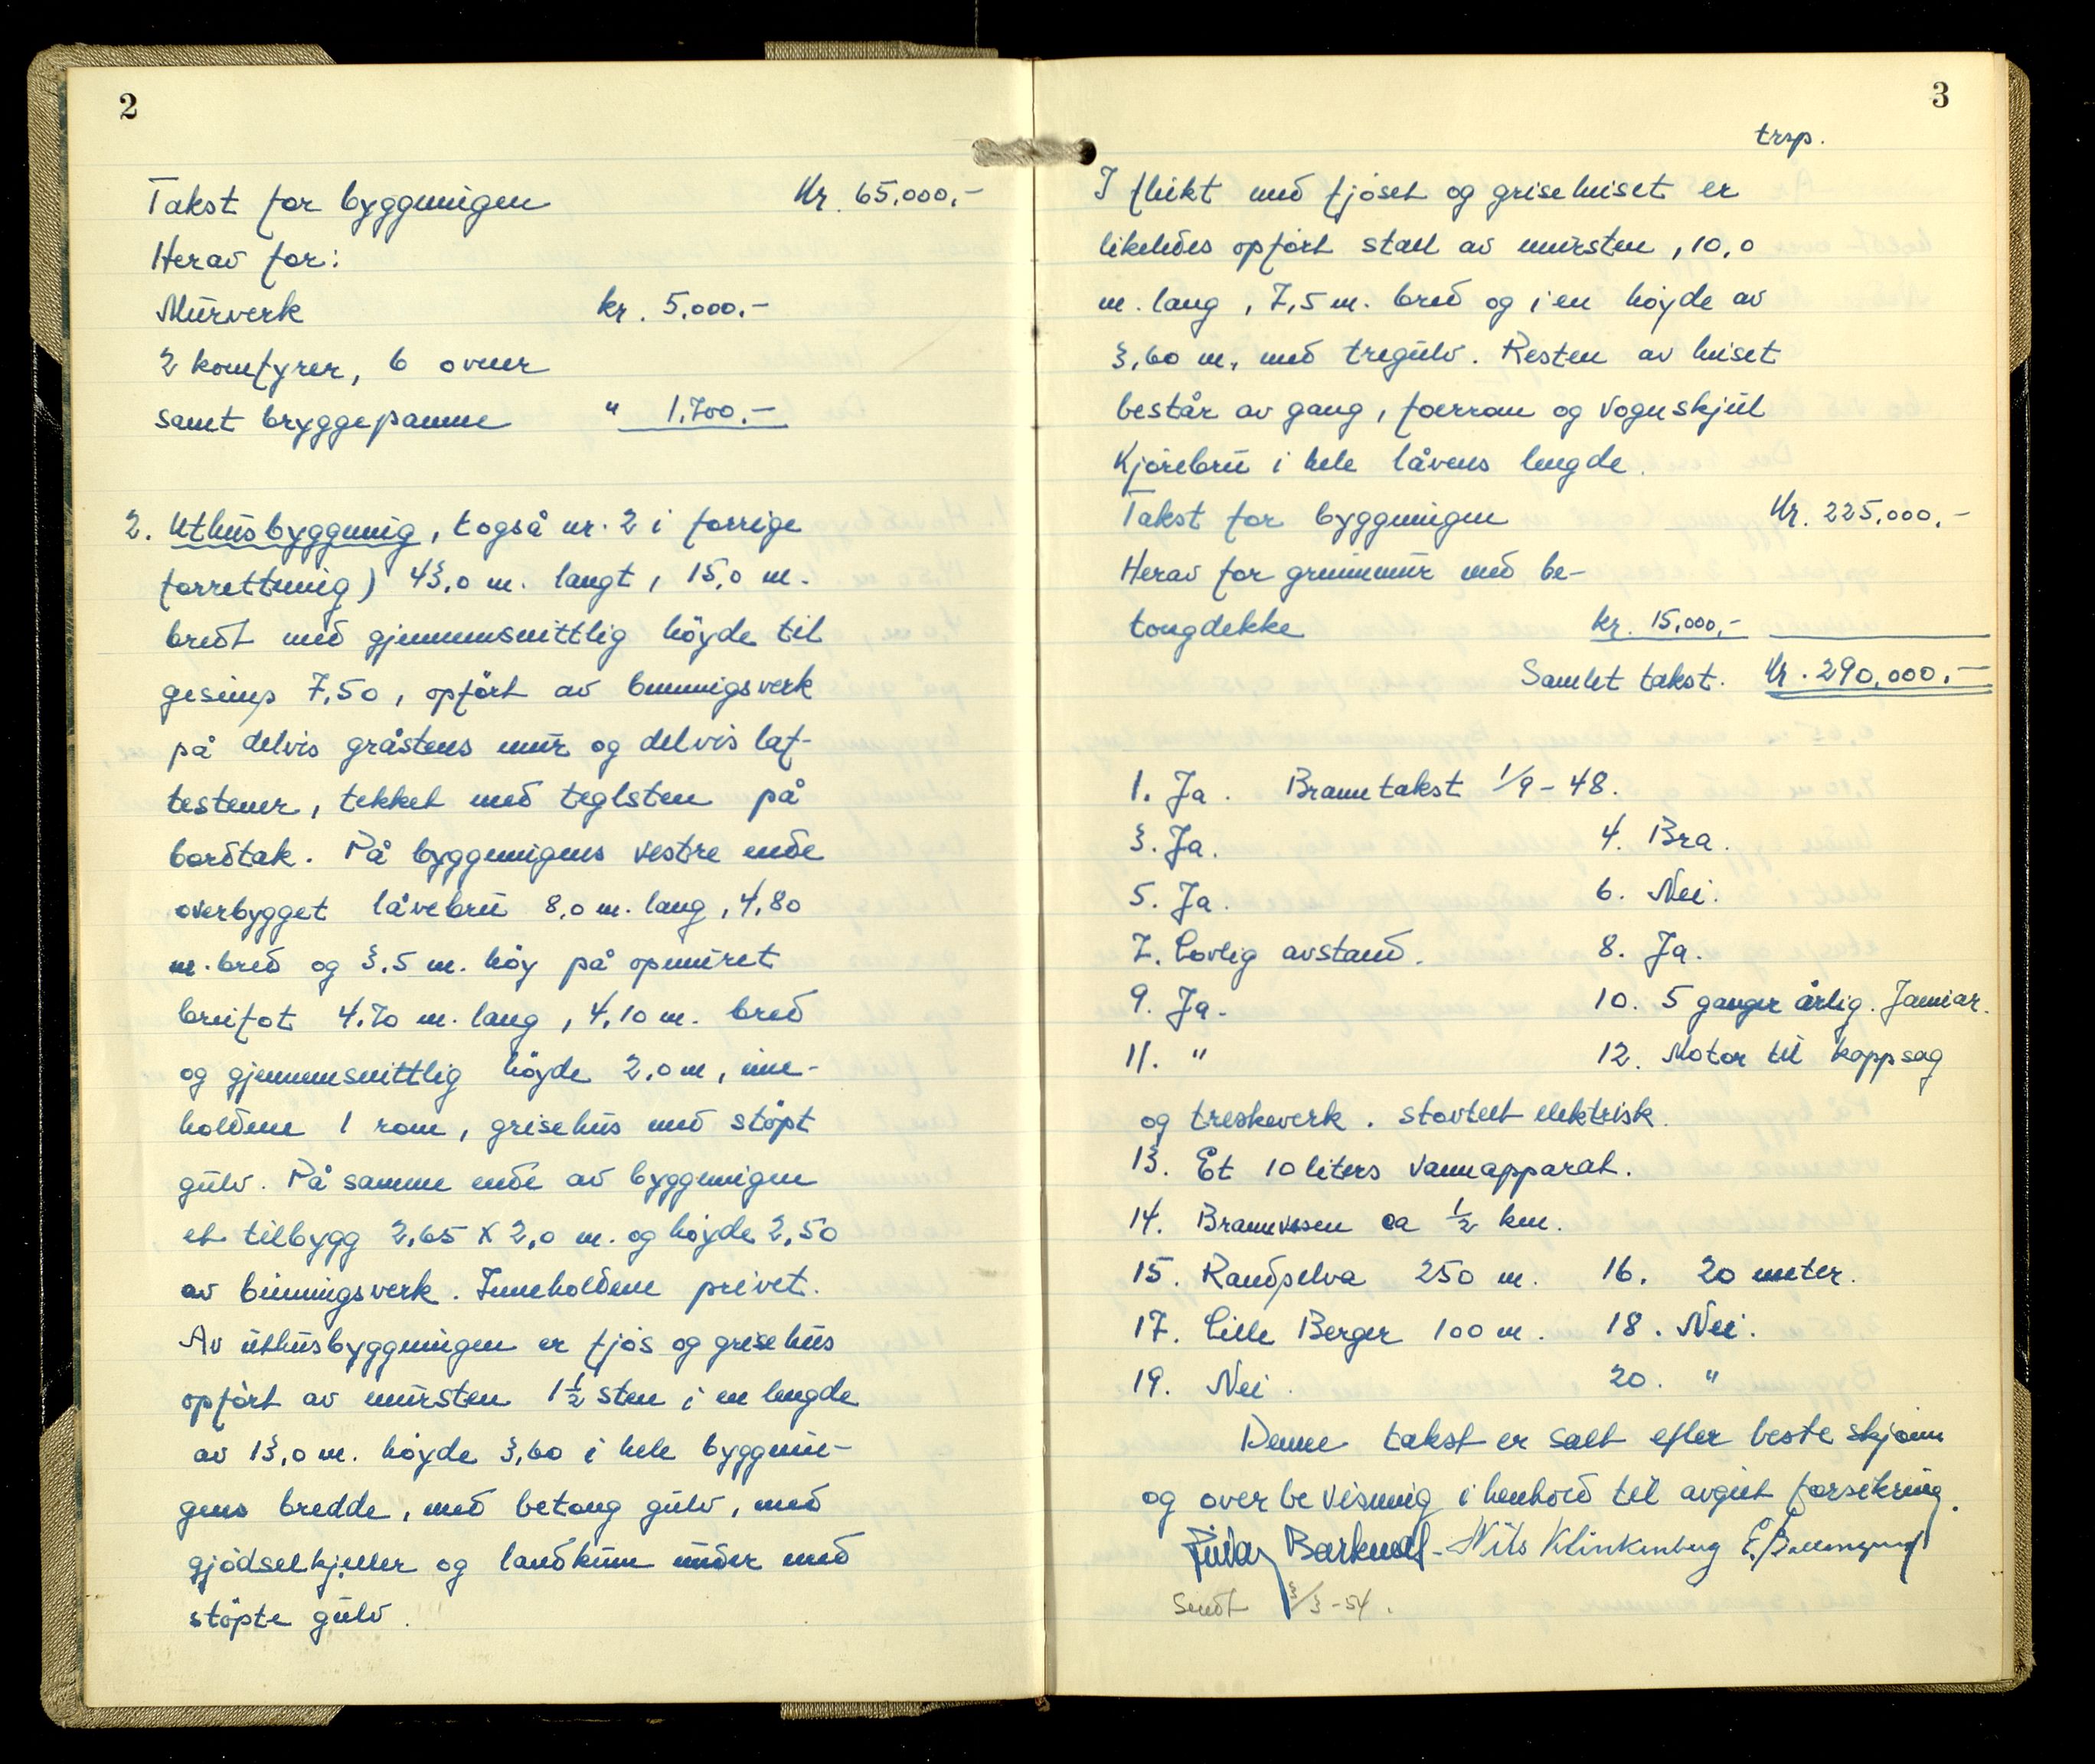 2
Takst for byggningen Kr. 65.000,-
Herav for:
Murverk kr. 5.000.-
2 komfyrer, 6 ovner
samt bryggepanne " 1.700.-
2. Uthusbyggning, (også nr. 2 i forrige
forrettning) 43,0 m. langt, 15,0 m.
bredt med gjennemsnittlig höyde til
gesims 7,50, opfört av binningsverk
på delvis gråstens mur og delvis laf-
testener, tekket med teglsten på
bordtak. På byggningens vestre ende
overbygget låvebru 8,0 m. lang, 4,80
m. bred og 3,5 m. höy på opmuret
brufot 4,70 m. lang, 4,10 m. bred
og gjennemsnittlig höyde 2,0 m, inne-
holdene 1 rom, grisehus med stöpt
gulv. På samme ende av byggningen
et tilbygg 2,65 x 2,0 m. og höyde 2,50
av binningsverk. Inneholdene privet.
Av uthusbyggningen er fjös og grisehus
opfört av mursten 1 1/2 sten i en lengde
av 13,0 m. höyde 3,60 i hele byggnin-
gens bredde, med betong gulv, med
gjödselkjeller og landkum under med
stöpte gulv.
3
trsp.
I flukt med fjöset og grisehuset er
likeledes opfört stall av mursten, 10,0
m. lang, 7,5 m. bred og i en höyde av
3,60 m, med tregulv. Resten av huset
består av gang, foerrom og vognskjul
Kjörebru i hele låvens lengde.
Takst for byggningen Kr. 225.000.-
Herav for grunnmur med be-
tongdekke kr. 15,000,-
Samlet takst. Kr. 290,000.-
1. Ja. Branntakst 1/9-48.
3. Ja. 4. Bra.
5. Ja. 6. Nei.
7. Lovlig avstand. 8. Ja.
9. Ja. 10. 5 ganger årlig. Januar.
11. " 12. Motor til kappsag
og treskeverk. støvtett elektrisk.
13. Et 10 liters vannapparat.
14. Brannvesen ca 1/2 km.
15. Randselva 250 m. 16. 20 meter.
17. Lille Berger 100 m. 18. Nei.
19. Nei. 20. "
Denne takst er satt efter beste skjönn
og overbevisning i henhold til avgitt forsikring.
Nils Klinkenberg
Sendt 3/3-54.